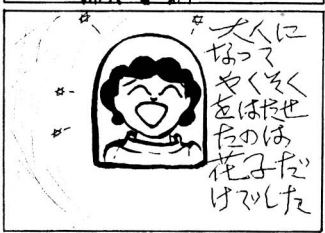 大人に
なって
やくそく
をはたせ
たのは
花子だ
けでした